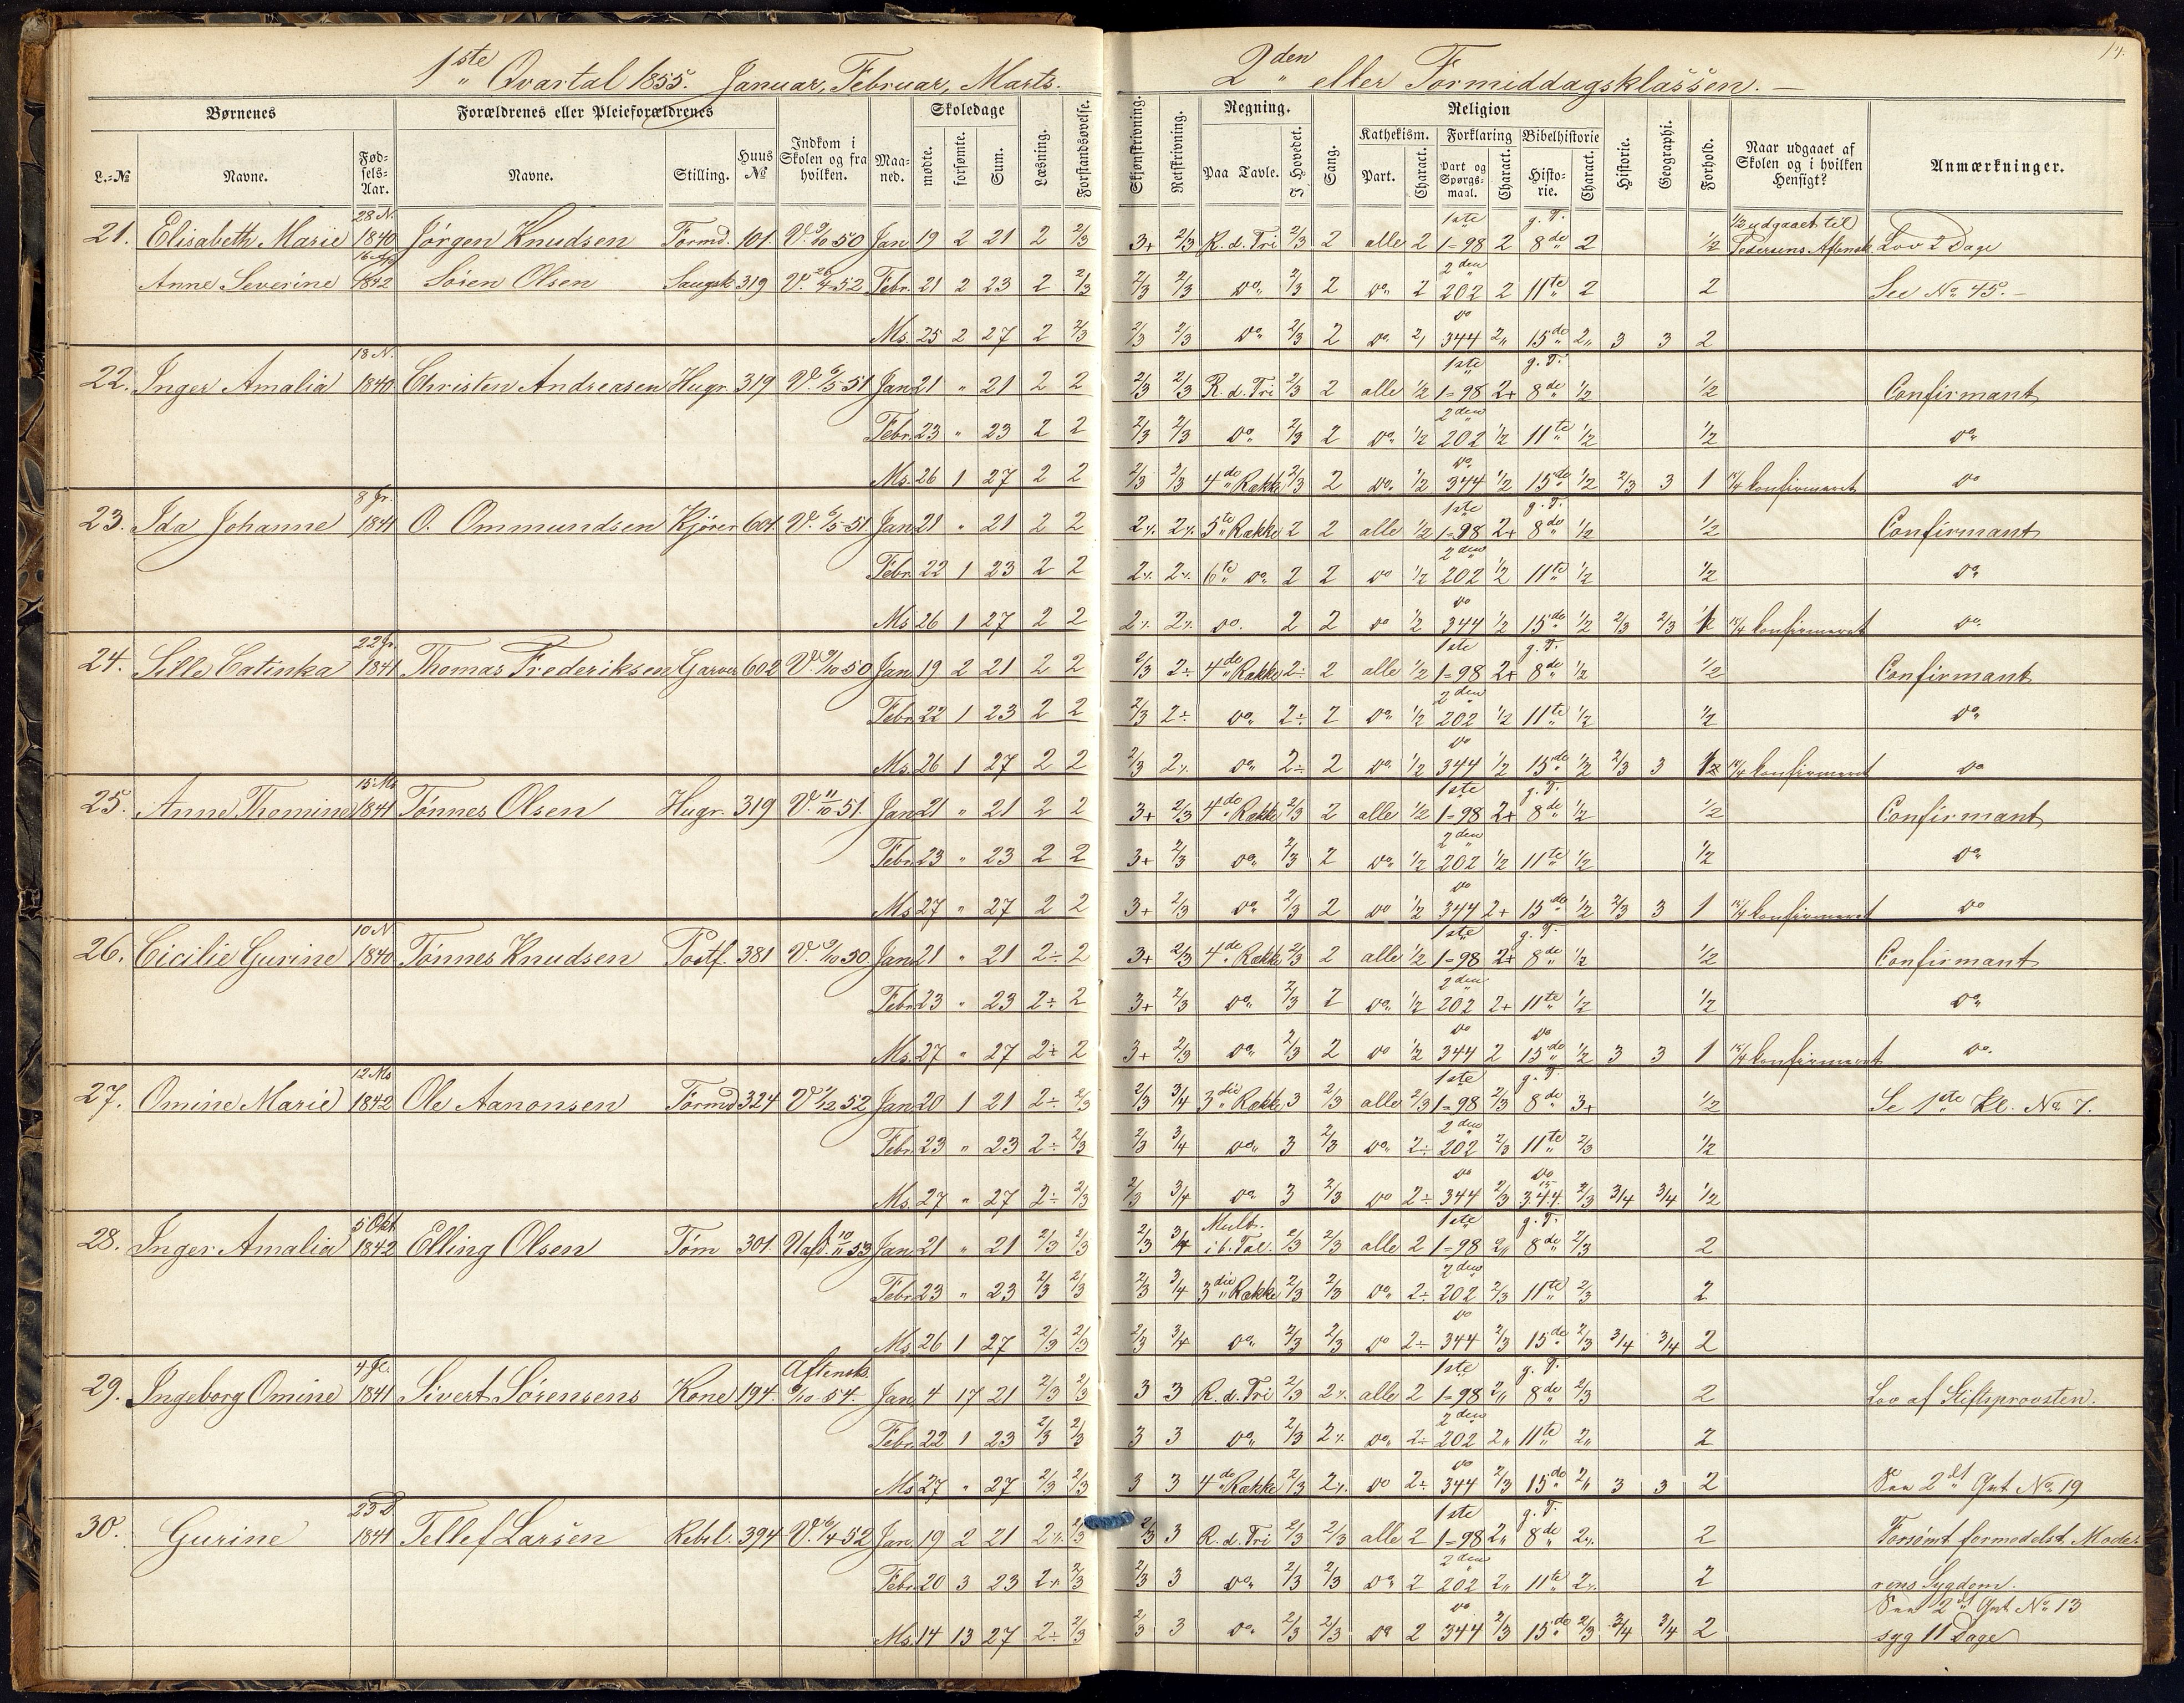 1ste Qvartal 1855. Januar, Februar, Marts.
2den eller Formiddagsklassen. —
14.
Børnenes
Forældrenes eller Pleieforældrenes
L.-No Navne. Fød-sels-Aar. Navne. Stilling. Huus No Indkom i Skolen og fra hvilken. Maa-ned. Skoledage mødte. forsømte. Sum. Læsning. Forstandsøvelse.
Skjønskrivning. Retskrivning. Regning. Paa Tavle. I Hovedet. Sang. Religion Kathekism. Part. Charact. Forklaring Part og Spørgs-maal. Charact. Bibelhistorie Histo-rie. Charact. Historie. Geographi. Forhold. Naar udgaaet af Skolen og i hvilken Hensigt? Anmærkninger.
21. Elisabeth Marie 28 N. 1840 Jørgen Knudsen Tormd. 101. V. 9/10 50 Jan 19 2 21 2 2/3 3+ 2/3 R. d. Tri 2/3 2 alle 2 1ste 1=98 2 g. T. 8de 2 1/2 1/2 udgaaet til Pedersens Aftensk. Lov 2 Dage
Anne Severine 1842 Søren Olsen Saugsk 319 V. 26/4 52 Febr. 21 2 23 2 2/3 2/3 2/3 do 2/3 2 do 2 2den 202 2 11te 2 2 See No 45. —
Ms. 25 2 27 2 2/3 2/3 2/3 do 2/3 2 do 2 do 344 2 15de 2 3 3 2
22. Inger Amalia 18 N. 1840 Christen Andreasen Hugr. 319 V. 6/5 51 Jan 21 " 21 2 2 2/3 2/3 R. d. Tri 2/3 2 alle 1/2 1ste 1=98 2+ g. T. 8de 1/2 1/2 Confirmant
Febr. 23 " 23 2 2 2/3 2/3 do 2/3 2 do 1/2 2den 202 1/2 11te 1/2 1/2 do
Ms. 26 1 27 2 2 2/3 2/3 4de Række 2/3 2 do 1/2 do 344 1/2 15de 1/2 2/3 3 1 15/4 konfirmeret do
23. Ida Johanne 8 Jr. 1841 O. Ommundsen Kjører 601. V. 6/5 51 Jan 21 " 21 2 2 2% 2% 5te Række 2 2 alle 1/2 1ste 1=98 2+ g. T. 8de 1/2 1/2 Confirmant
Febr. 22 1 23 2 2 2% 2% 6te do 2 2 do 1/2 2den 202 1/2 11te 1/2 1/2 do
Ms 26 1 27 2 2 2% 2% do. 2 2 do 1/2 do 344 1/2 15de 1/2 2/3 2/3 1 15/4 konfirmeret do
24. Sille Catinka 22 Jr. 1841 Thomas Frederiksen Garver 602 V. 9/10 50 Jan 19 2 21 2 2 2/3 2÷ 4de Række 2÷ 2 alle 1/2 1ste 1=98 2+ g. T. 8de 1/2 1/2 Confirmant
Febr. 22 1 23 2 2 2/3 2÷ do 2÷ 2 do 1/2 2den 202 1/2 11te 1/2 1/2 do
Ms. 26 1 27 2 2 2/3 2% do 2÷ 2 do 1/2 do 344 1/2 15de 1/2 2/3 3 1 15/4 konfirmeret do
25. Anne Thomine 15 Ms 1841 Tønnes Olsen Hugr. 319 V. 11/10 51. Jan 21 " 21 2 2 3+ 2/3 4de Række 2/3 2 alle 1/2 1ste 1=98 2+ g. T. 8de 1/2 1/2 Confirmant
Febr. 23 " 23 2 2 3+ 2/3 do 2/3 2 do 1/2 2den 202 1/2 11te 1/2 1/2 do
Ms 27 " 27 2 2 3+ 2/3 do 2/3 2 do 1/2 do 344 2+ 15de 1/2 2/3 3 1 15/4 konfirmeret do
26. Cicilie Gurine 10 N 1840 Tønnes Knudsen Postf. 381 V. 9/10 50 Jan 21 " 21 2÷ 2 3+ 2/3 4de Række 2/3 2 alle 1/2 1ste 1=98 2+ g. T. 8de 1/2 1/2 Confirmant
Febr. 23 " 23 2÷ 2 3+ 2/3 do 2/3 2 do 1/2 2den 202 2+ 11te 1/2 1/2 do
Ms. 27 " 27 2÷ 2 3+ 2/3 do 2/3 2 do 1/2 do 344 2 do 15de 1/2 3 3 1 15/4 konfirmeret do.
27. Omine Marie 12 Ms 1842 Ole Aanonsen Tormd 324 V 1/12 52 Jan 20 1 21 2÷ 2/3 2/3 3/4 3die Række 3 2/3 alle 2/3 1ste 1=98 2/3 g. T. 8de 3+ 1/2 Se 1ste Kl. No 7.
Febr. 23 " 23 2÷ 2/3 2/3 3/4 do 3 2/3 do 2÷ 2den 202 2/3 11te 2/3 1/2
Ms. 27 " 27 2÷ 2/3 2/3 3/4 do 3 2/3 do 2÷ do 344 2/3 do 15 344 2/3 3/4 3/4 1/2
28. Inger Amalia 5 Okt 1842 Elling Olsen Tøm 301. Uafd. 10/11 53 Jan 21 " 21 2/3 2/3 2/3 3/4 Mult. i b. Tal. 2/3 2/3 alle 2 1ste 1=98 2 g. T. 8de 2/3 2
Febr. 23 " 23 2/3 2/3 2/3 3/4 3die Række 2/3 2/3 do 2÷ 2den 202 2/3 11te 2/3 2
Ms. 26 1 27 2/3 2/3 2/3 3/4 do 2/3 2/3 do 2÷ do 344 2/3 15de 2/3 3/4 3/4 2
29. Ingeborg Omine 4 Jl. 1841 Sivert Sørensens Kone 194. Aftensk. 9/10 54. Jan 4 17 21 2/3 2/3 3 3 R. d. Tri 2/3 2% alle 2 1ste 1=98 2 g. T. 8de 2/3 2 Lov af Stiftsprovsten.
Febr. 22 1 23 2/3 2/3 3 3 do 2/3 2% do 2÷ 2den 202 2 11te 2 2
Ms 27 " 27 2/3 2/3 3 3 4de Række 2/3 2% do 2÷ do 344 2/3 15de 2 3 3 2 2det Qrt No 19
30. Gurine 23 D 1841 Tellef Larsen Rebsl. 394 V. 16/4 52 Jan. 19 2 21 2% 2/3 2/3 3 R. d. Tri 2/3 2/3 alle 2 1ste 1=98 2 g. T. 8de 2% 2 Forsømt formedelst Mode-
Febr. 20 3 23 2+ 2/3 2/3 3 do 2/3 2/3 do 2 2den 202 2 11te 2% 2 rens Sygdom.
2det Qrt No 13
Ms. 14 13 27 2÷ 2/3 2/3 3 do 2/3 2/3 do 2 do 344 2/3 15de 2/3 3/4 3/4 2 syg 11 Dage